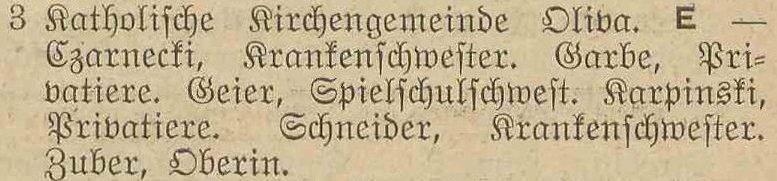 3 Katholische Kirchengemeinde Oliva. E —
Czarnecki, Krankenschwester. Garbe, Pri-
vatiere. Geier, Spielschulschwest. Karpinski,
Privatiere. Schneider, Krankenschwester.
Zuber, Oberin.